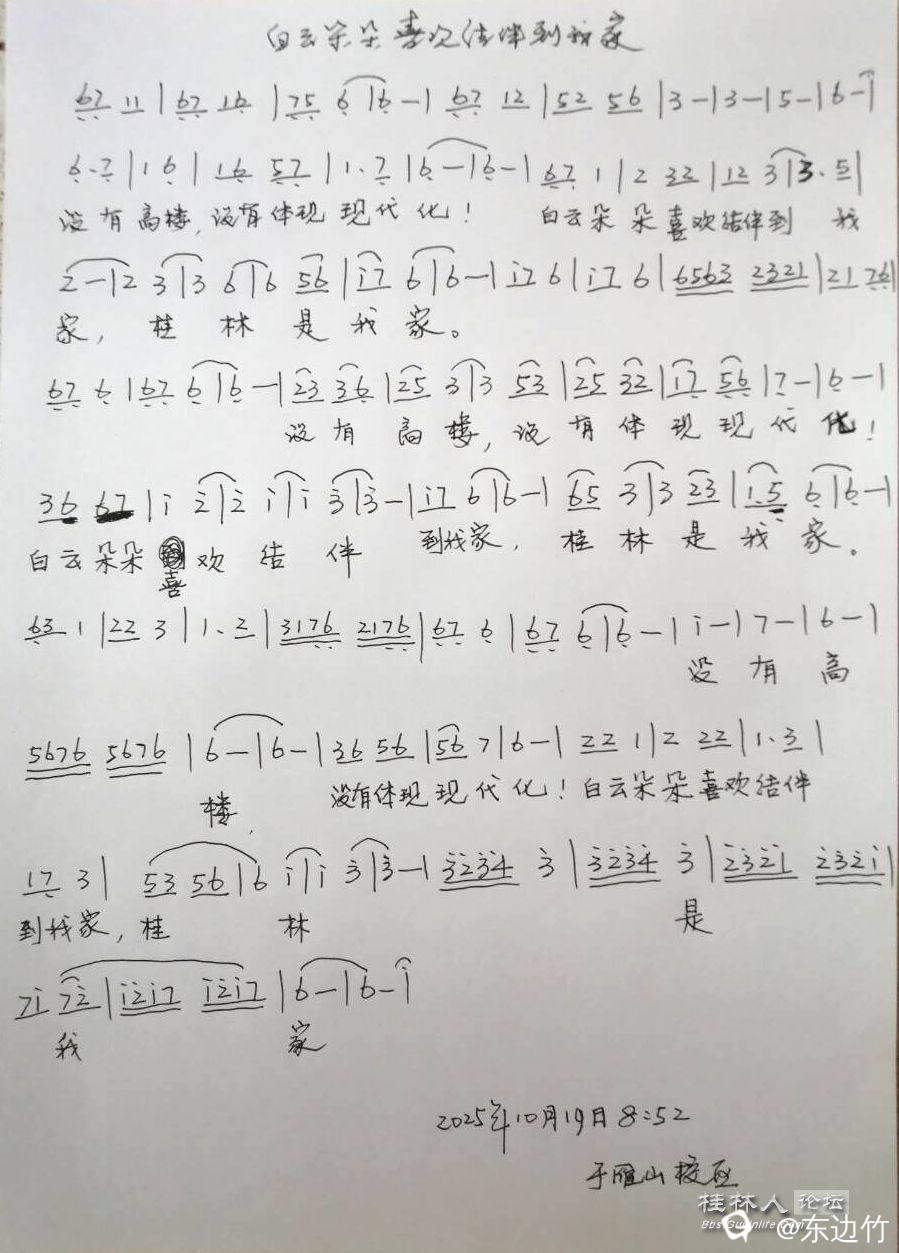 白云朵朵喜欢结伴到我家
67 11 | 67 16 | 75 6 | 6 - | 67 12 | 52 56 | 3 - | 3 - | 5 - | 6 - |
6. 7 | 1 6 | 16 57 | 1. 7 | 6 - | 6 - | 67 1 | 2 32 | 12 3 | 3. 5 |
没有高楼,没有体现现代化! 白云朵朵喜欢结伴到我
2 - | 2 3 | 3 6 | 6 56 | i7 6 | 6 - | i7 6 | i7 6 | 6563 2321 | 21 76 |
家,桂林是我家。
67 6 | 67 6 | 6 - | 23 36 | 25 3 | 3 53 | 25 32 | i7 56 | 7 - | 6 - |
没有高楼,没有体现现代化!
36 67 | i 2 | 2 i | i 3 | 3 - | i7 6 | 6 - | 65 3 | 3 23 | 1.5 6 | 6 - |
白云朵朵喜欢结伴到我家,桂林是我家。
63 1 | 22 3 | 1. 2 | 3176 2176 | 67 6 | 67 6 | 6 - | i - | 7 - | 6 - |
没有高
5676 5676 | 6 - | 6 - | 36 56 | 56 7 | 6 - | 22 1 | 2 22 | 1. 3 |
楼,没有体现现代化!白云朵朵喜欢结伴
17 3 | 53 56 | 6 i | i 3 | 3 - | 3234 3 | 3234 3 | 232i 232i |
到我家,桂林是
7i 72 | i2i7 i2i7 | 6 - | 6 - |
我家
2025年10月19日 8:52
于雁山校区
桂林人论坛
Bbs.Guilinlife.Com
@东边竹